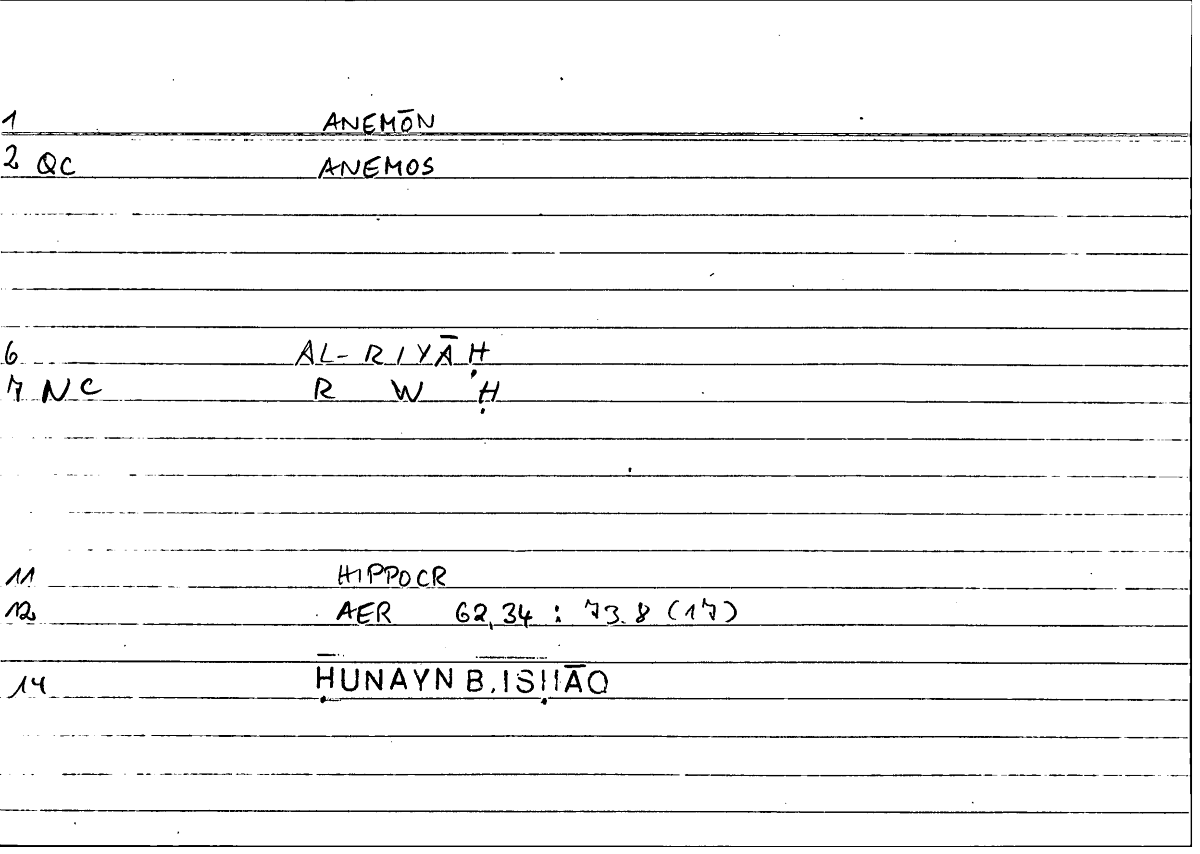 1 ANEMŌN
2 QC ANEMOS
6 AL-RIYĀḤ
7 NC R W Ḥ
11 HIPPOCR
12 AER 62,34 : 73.8 (17)
14 ḤUNAYN B. ISḤĀQ